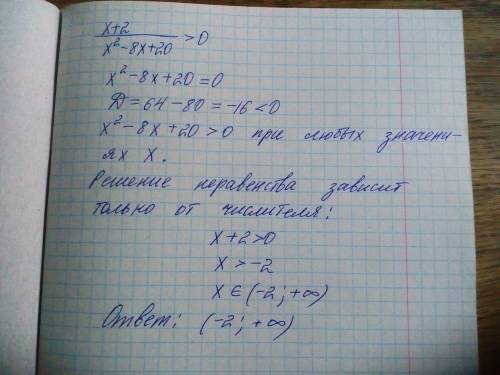 x+2
x²-8x+20 >0
x²-8x+20=0
D=64-80=-16<0
x²-8x+20>0 при любых значени-
ях x.
Решение неравенства зависит
только от числителя:
x+2>0
x>-2
x∈(-2;+∞)
Ответ: (-2;+∞)